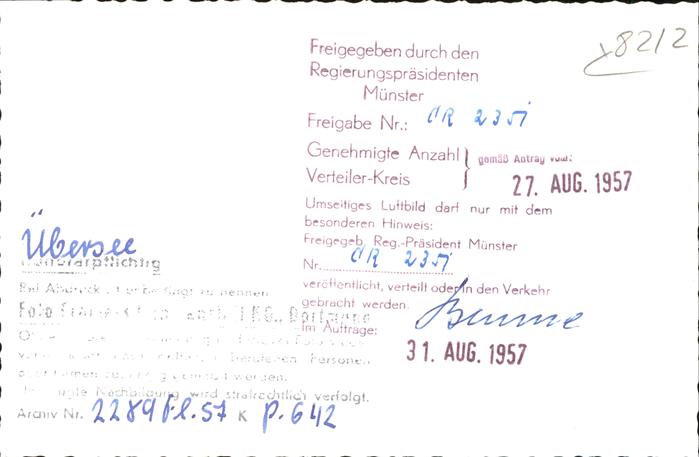 8212
Freigegeben durch den
Regierungspräsidenten
Münster
Freigabe Nr.: CR 235i
Genehmigte Anzahl
Verteiler-Kreis
gemäß Antrag vom:
27. AUG. 1957
Umseitiges Luftbild darf nur mit dem
besonderen Hinweis:
Freigegeb. Reg.-Präsident Münster
Nr. CR 235i
veröffentlicht, verteilt oder in den Verkehr
gebracht werden.
Im Auftrage:
31. AUG. 1957
Übersee
Honorarpflichtig
Bei Abdruck unbedingt zu nennen
Foto Dortmund
Personen
werden.
Nachbildung wird strafrechtlich verfolgt.
Archiv Nr. 2289 Fl. 57 K P. 642